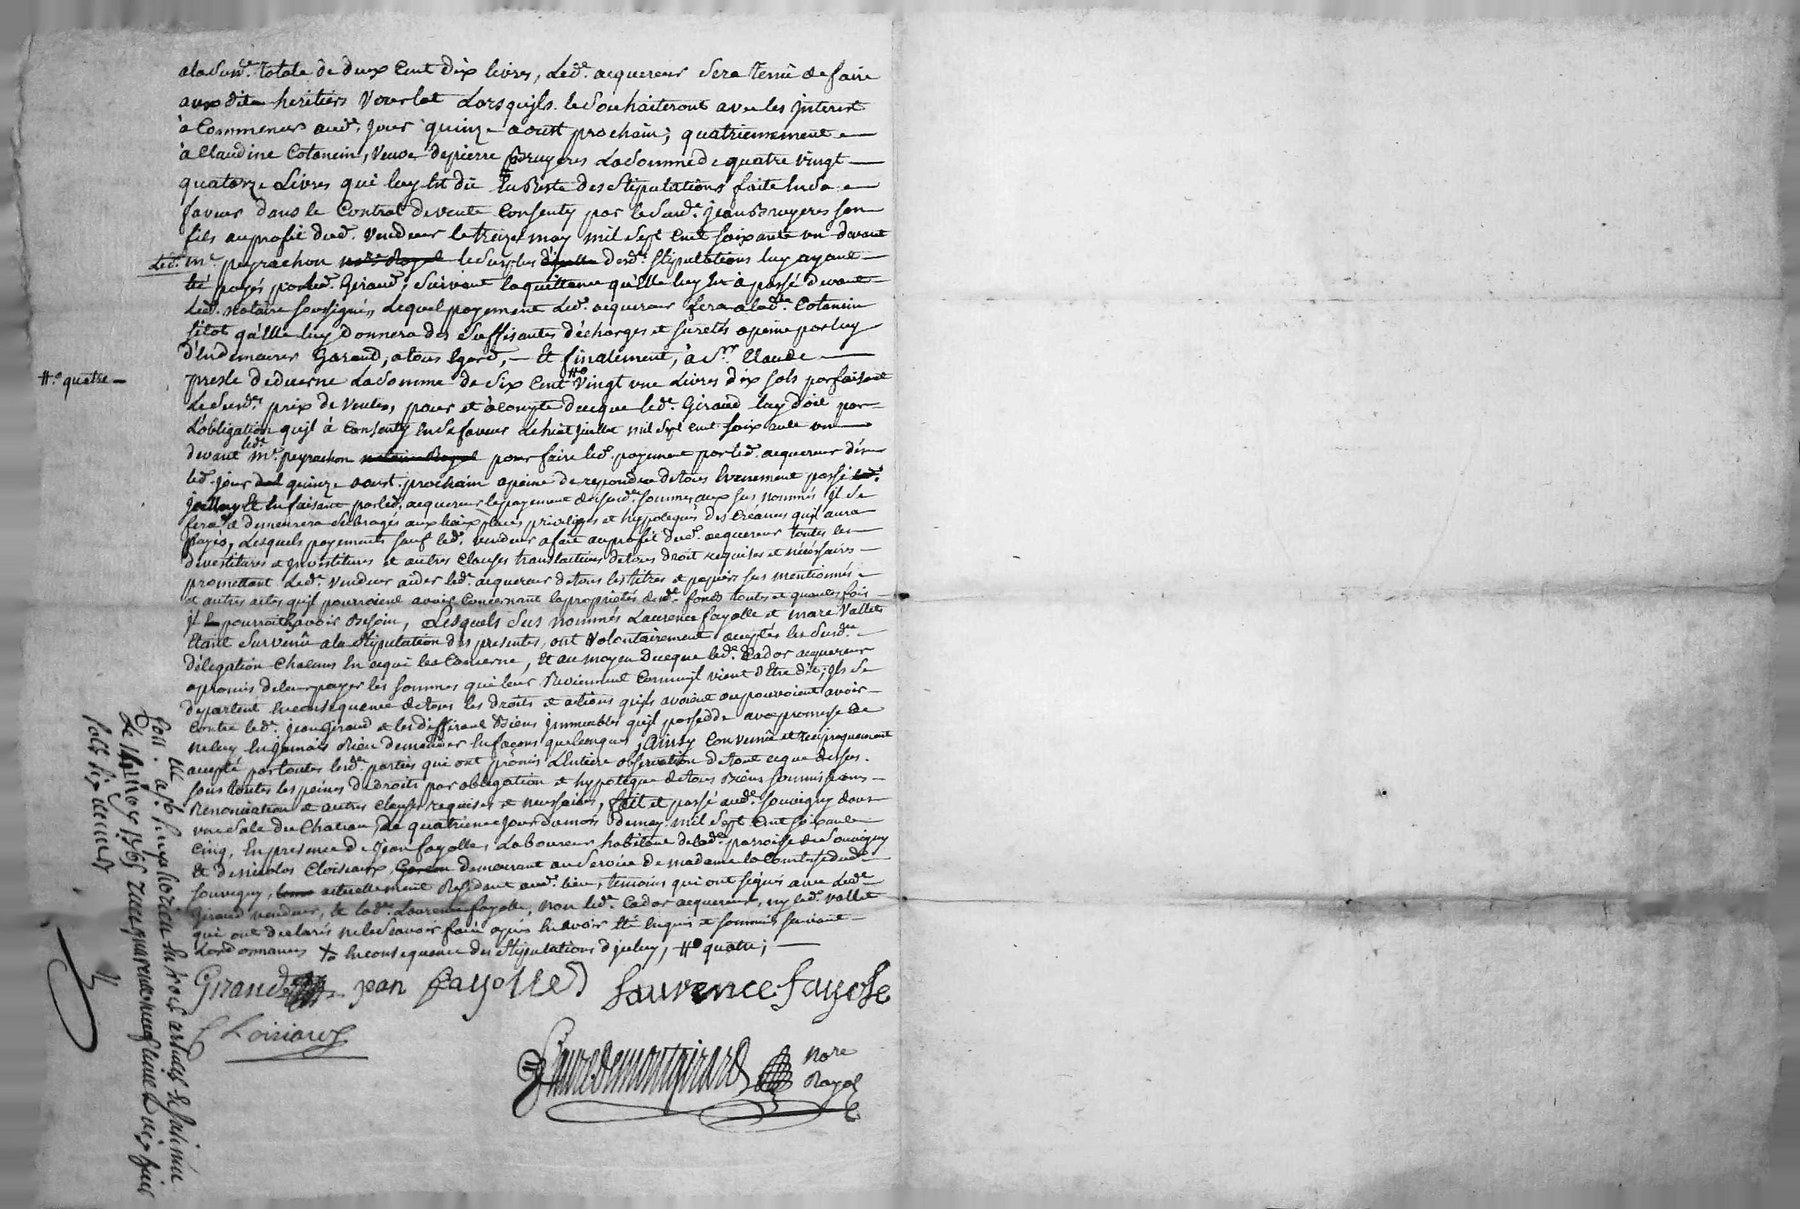 alasusd.e totale de deux Cent dix livres, Led.t acquereur sera tenu de faire
aux dits heritiers vourlat Lorsqu'jls le souhaiteront avec les jnterest
à Commencer aud.t jour quinze aoust prochain; quatriemement
à Claudine Cotancin, veuve de pierre Bruyeres La somme de quatre vingt
quatorze Livres qui luy est dû En Reste des stipulations faite En sa
faveur dans le Contrat de vente Consenty par le susd.t jean Bruyeres son
fils au profit dud.t vendeur le treize may mil sept Cent soixante un devant
Led.t m.e peyrachon le surplus desd.tes stipulations luy ayant
été payés par led.t Giraud, suivant la quittance qu'Elle luy En à passé devant
Led.t notaire soussigné, Lequel payement Led.t acquereur fera a lad.te Cotancin
sitot qu'Elle luy Donnera des suffisantes décharges et suretés a peine par luy
d'En demeurer Garand, a tous Egard, Et finalement, à S.r Claude
#.o quatre
presle de ducerne La somme de six Cent #o vingt une Livres dix sols parfaisant
Le susd.t prix de ventes, pour et à compte de ce que led.t Giraud luy doit par
L'obligation qu'jl à Consenty En sa faveur Le huit juillet mil sept Cent soixante un
devant led.t m.e peyrachon pour faire led.t payement par led.t acquereur dés
led.t jour quinze aoust prochain a peine de repondre de tous Evenement passé
Et En faisant par led.t acquereur le payement des susd.tes sommes aux sus nommés jl se
fera & demeurera subrogés aux lieux places privileges et hypoteques des Créances qu'jl aura
payés, Lesquels payements sauf led.t vendeur a fait au profit dud.t acquereur toutes les
divestitures et jnvestitures et autres Clauses translatives de tous droit requises et nécéssaires
promettant Led.t vendeur aider led.t acquereur de tous les titres et papiers sus mentionnés
et autres actes qu'jl pourroient avoir Concernant la proprietés desd.t fonds toutes et quantes fois
jl pourroit avoir Besoin, Lesquels sus nommés Laurence fayolle et marc Vallet
Etant survenû a la stipulation des presentes, ont volontairement acceptés les susd.te
délegation Chacuns En ce qui les Concerne, Et au moyen de ce que led.t Cador acquereur
a promis de leur payer les sommes qui leur Reviennent Comm'jl vient d'Etre dit, jls se
departent En consequence de tous les droits et actions qu'jls avoient ou pourroient avoir
Contre led.t jean Giraud et les differend Biens jmmeubles qu'jl possedde avec promesse de
ne luy En jamais Rien demander En façons quelconques, Ainsy Convenû et reciproquement
accepté par toutes lesd.tes parties qui ont promis L'entiere observation de tout ce que dessus
sous toutes les peines de droits par obligation et hypoteque de tous Biens soumissions
Renonciation et autres Clauses requises et necessaires, fait et passé aud.t souvigny dans
une sale du Chateau, Le quatrieme jour du mois de may mil sept Cent soixante
cinq, En presence de jean fayolle Laboureur habitant de lad.te parroisse de souvigny
Et de nicolas Cloisiaux demeurant au service de madame la Comtesse dud.t
souvigny, actuellement Residant aud.t lieu, temoins qui ont signés avec Led.t
Giraud vendeur, Et lad.te Laurence fayolle, non led.t Cador acquereur, ny led.t vallet
qui ont declarés ne le sçavoir faire apres En avoir Eté Enquis et sommés suivant
Lordonnances X En consequence des stipulations d'jceluy, #o quatre;
Giraud jean fayolle laurence fayole
Cloisiaux
faure de montgirard no.re
Royal